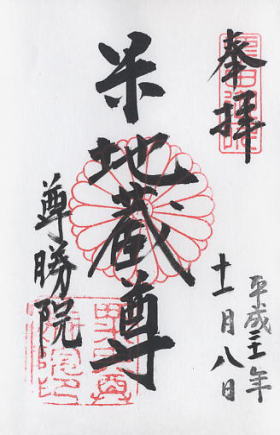 奉拝
平成二十一年
十一月八日
米地蔵尊
尊勝院